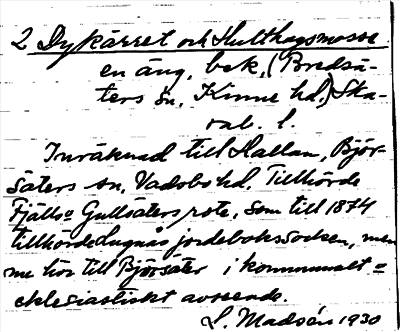 2 Dykärret och Hulthagsmosse
en äng, bek. (Bredsä-
ters sn, Kinne hd,) Ska-
rab. l.
Inräknad till Hallan, Björ-
säters sn, Vadsbo hd. Tillhörde
Fjälls o Gullsäters rote, som till 1874
tillhörde Lugnås jordebokssocken, men
nu hör till Björsäter i kommunalt o
eklesiastiskt avseende.
L. Madsén 1930